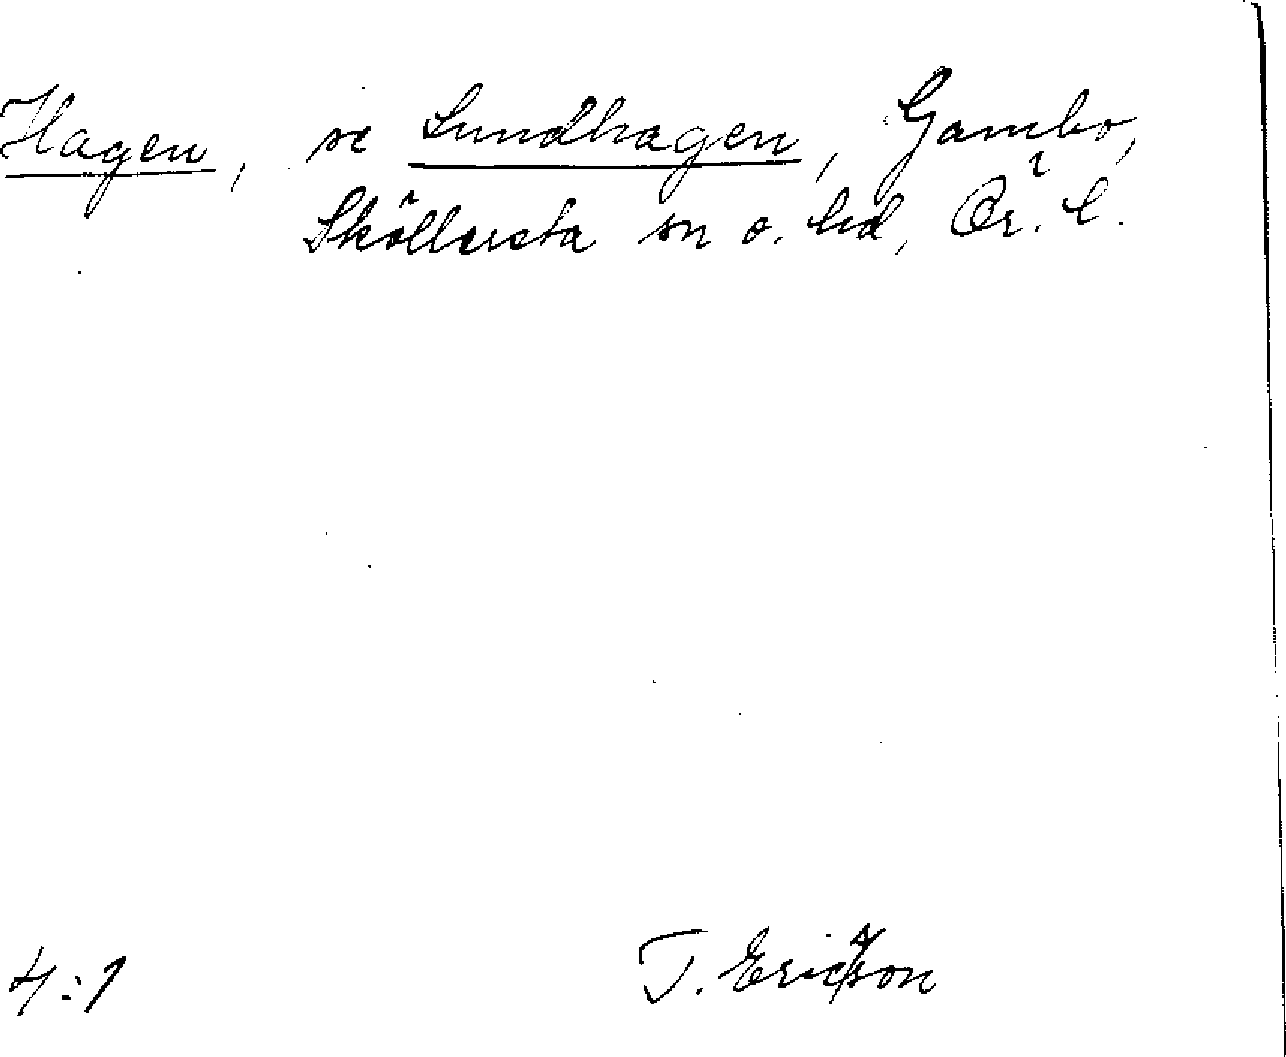 Hagen, se Lundhagen, Gambo,
Sköllersta sn o. hd, Ör. l.
4:1 T. Ericsson